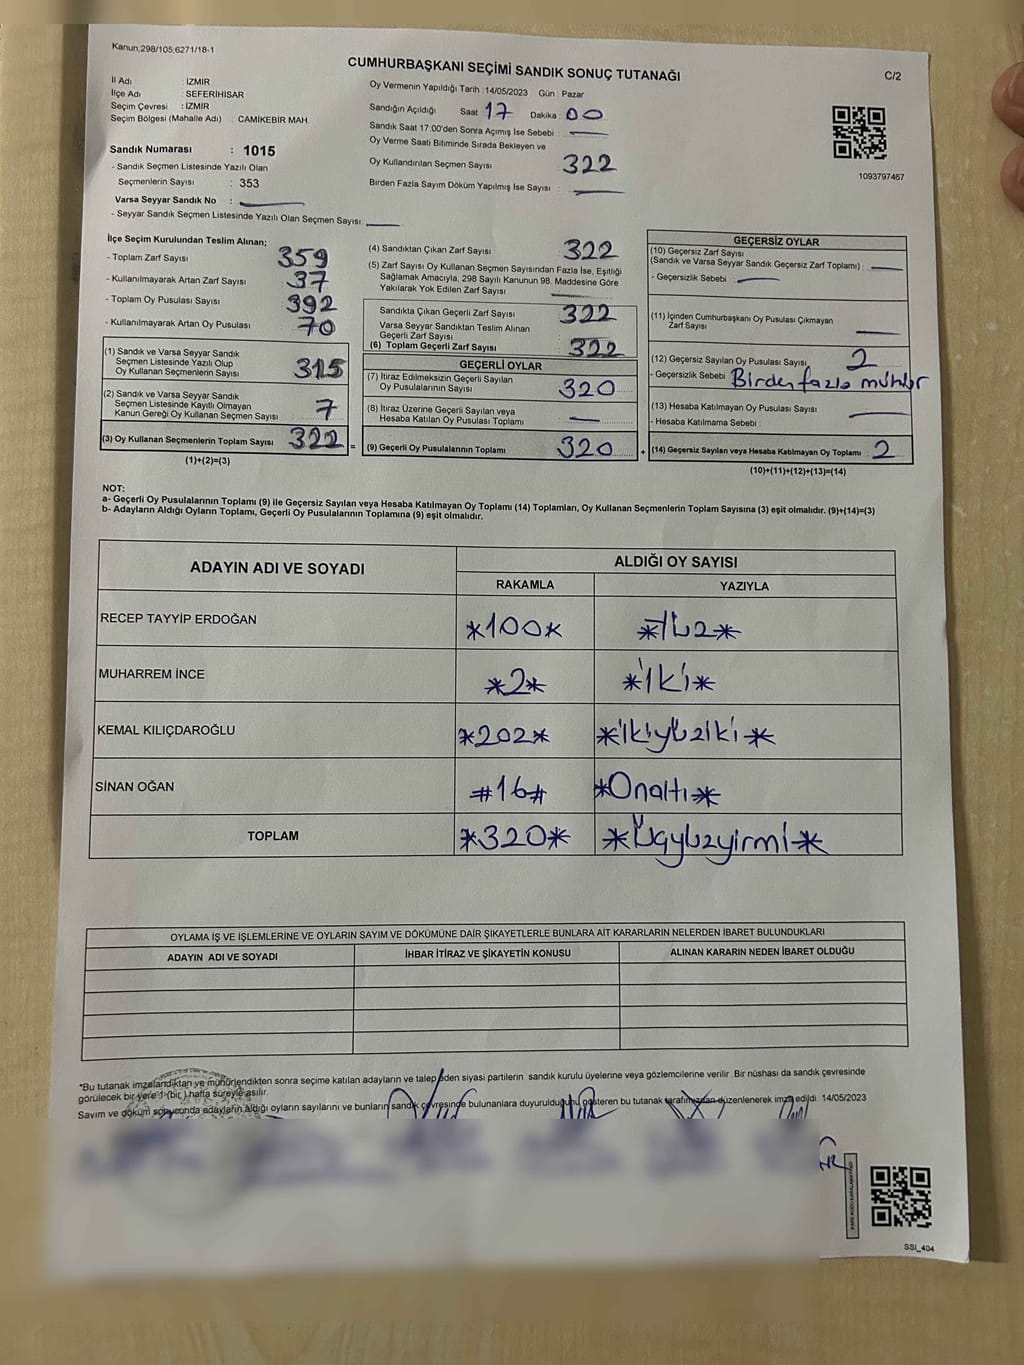 Kanun,298/105,6271/18-1
CUMHURBAŞKANI SEÇİMİ SANDIK SONUÇ TUTANAĞI
C/2
İl Adı : İZMİR
İlçe Adı : SEFERİHİSAR
Seçim Çevresi : İZMİR
Seçim Bölgesi (Mahalle Adı) : CAMİKEBİR MAH.
Sandık Numarası : 1015
- Sandık Seçmen Listesinde Yazılı Olan
Seçmenlerin Sayısı : 353
Varsa Seyyar Sandık No :
- Seyyar Sandık Seçmen Listesinde Yazılı Olan Seçmen Sayısı:
Oy Vermenin Yapıldığı Tarih :14/05/2023 Gün : Pazar
Sandığın Açıldığı Saat 17 Dakika : 00
Sandık Saat 17:00'den Sonra Açımış İse Sebebi :
Oy Verme Saati Bitiminde Sırada Bekleyen ve
Oy Kullandırılan Seçmen Sayısı 322
Birden Fazla Sayım Döküm Yapılmış İse Sayısı :
1093797467
İlçe Seçim Kurulundan Teslim Alınan;
- Toplam Zarf Sayısı 359
- Kullanılmayarak Artan Zarf Sayısı 37
- Toplam Oy Pusulası Sayısı 392
- Kullanılmayarak Artan Oy Pusulası 70
(1) Sandık ve Varsa Seyyar Sandık
Seçmen Listesinde Yazılı Olup
Oy Kullanan Seçmenlerin Sayısı 315
(2) Sandık ve Varsa Seyyar Sandık
Seçmen Listesinde Kayıtlı Olmayan
Kanun Gereği Oy Kullanan Seçmen Sayısı 7
(3) Oy Kullanan Seçmenlerin Toplam Sayısı 322 =
(1)+(2)=(3)
(4) Sandıktan Çıkan Zarf Sayısı 322
(5) Zarf Sayısı Oy Kullanan Seçmen Sayısından Fazla İse, Eşitliği
Sağlamak Amacıyla, 298 Sayılı Kanunun 98. Maddesine Göre
Yakılarak Yok Edilen Zarf Sayısı
Sandıkta Çıkan Geçerli Zarf Sayısı 322
Varsa Seyyar Sandıktan Teslim Alınan
Geçerli Zarf Sayısı
(6) Toplam Geçerli Zarf Sayısı 322
GEÇERLİ OYLAR
(7) İtiraz Edilmeksizin Geçerli Sayılan
Oy Pusulalarının Sayısı 320
(8) İtiraz Üzerine Geçerli Sayılan veya
Hesaba Katılan Oy Pusulası Toplamı
(9) Geçerli Oy Pusulalarının Toplamı 320 +
GEÇERSİZ OYLAR
(10) Geçersiz Zarf Sayısı
(Sandık ve Varsa Seyyar Sandık Geçersiz Zarf Toplamı) :
- Geçersizlik Sebebi :
(11) İçinden Cumhurbaşkanı Oy Pusulası Çıkmayan
Zarf Sayısı
(12) Geçersiz Sayılan Oy Pusulası Sayısı 2
- Geçersizlik Sebebi : Birden fazla mühür
(13) Hesaba Katılmayan Oy Pusulası Sayısı
- Hesaba Katılmama Sebebi :
(14) Geçersiz Sayılan veya Hesaba Katılmayan Oy Toplamı : 2
(10)+(11)+(12)+(13)=(14)
NOT:
a- Geçerli Oy Pusulalarının Toplamı (9) ile Geçersiz Sayılan veya Hesaba Katılmayan Oy Toplamı (14) Toplamları, Oy Kullanan Seçmenlerin Toplam Sayısına (3) eşit olmalıdır. (9)+(14)=(3)
b- Adayların Aldığı Oyların Toplamı, Geçerli Oy Pusulalarının Toplamına (9) eşit olmalıdır.
ADAYIN ADI VE SOYADI ALDIĞI OY SAYISI
RAKAMLA YAZIYLA
RECEP TAYYİP ERDOĞAN *100* *Yüz*
MUHARREM İNCE *2* *iki*
KEMAL KILIÇDAROĞLU *202* *ikiyüziki*
SİNAN OĞAN #16# *Onaltı*
TOPLAM *320* *Üçyüzyirmi*
OYLAMA İŞ VE İŞLEMLERİNE VE OYLARIN SAYIM VE DÖKÜMÜNE DAİR ŞİKAYETLERLE BUNLARA AİT KARARLARIN NELERDEN İBARET BULUNDUKLARI
ADAYIN ADI VE SOYADI İHBAR İTİRAZ VE ŞİKAYETİN KONUSU ALINAN KARARIN NEDEN İBARET OLDUĞU
*Bu tutanak imzalandıktan ve mühürlendikten sonra seçime katılan adayların ve talep eden siyasi partilerin sandık kurulu üyelerine veya gözlemcilerine verilir. Bir nüshası da sandık çevresinde
görülecek bir yere 1 (bir ) hafta süreyle asılır.
Sayım ve döküm sonucunda adayların aldığı oyların sayılarını ve bunların sandık çevresinde bulunanlara duyurulduğunu gösteren bu tutanak tarafımızdan düzenlenerek imza edildi. 14/05/2023
SSİ_404